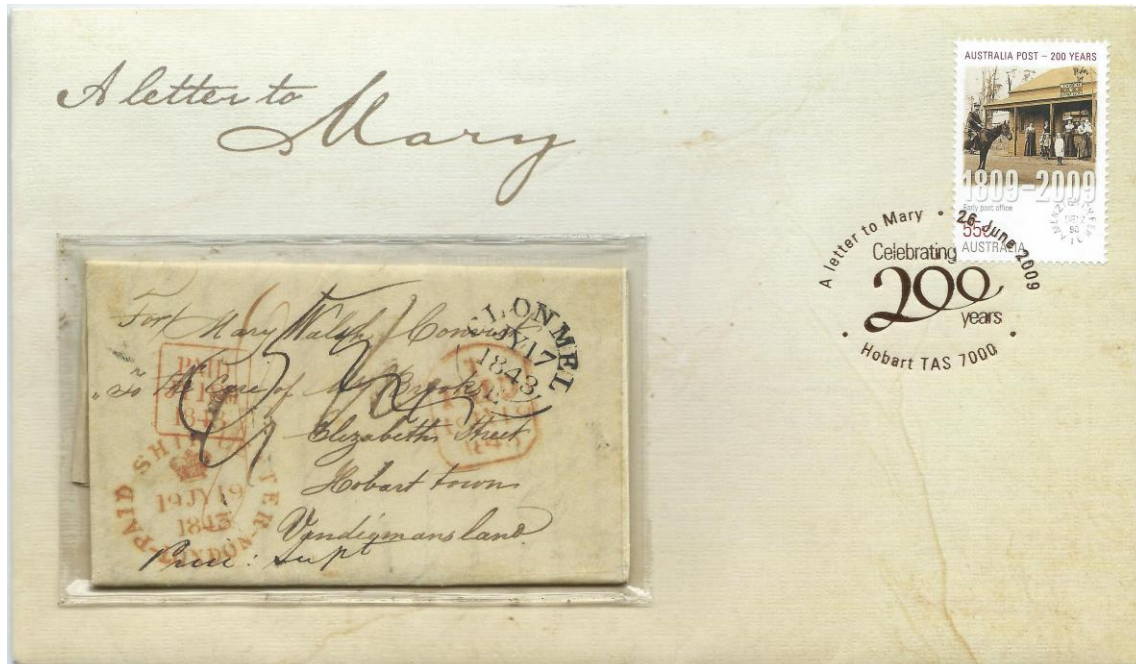 A letter to
Mary
AUSTRALIA POST – 200 YEARS
1809–2009
Early post office
55c
AUSTRALIA
A letter to Mary • 26 June 2009
Celebrating
200
years
• Hobart TAS 7000 •
For Mary Walsh Convict
To the Care of Mr Brooks
Elizabeth Street
Hobart town
Vandiemansland
CLONMEL
JY 17
1843
PAID
1843
PAID SHIP LETTER LONDON
19 JY 19
1843
PAID